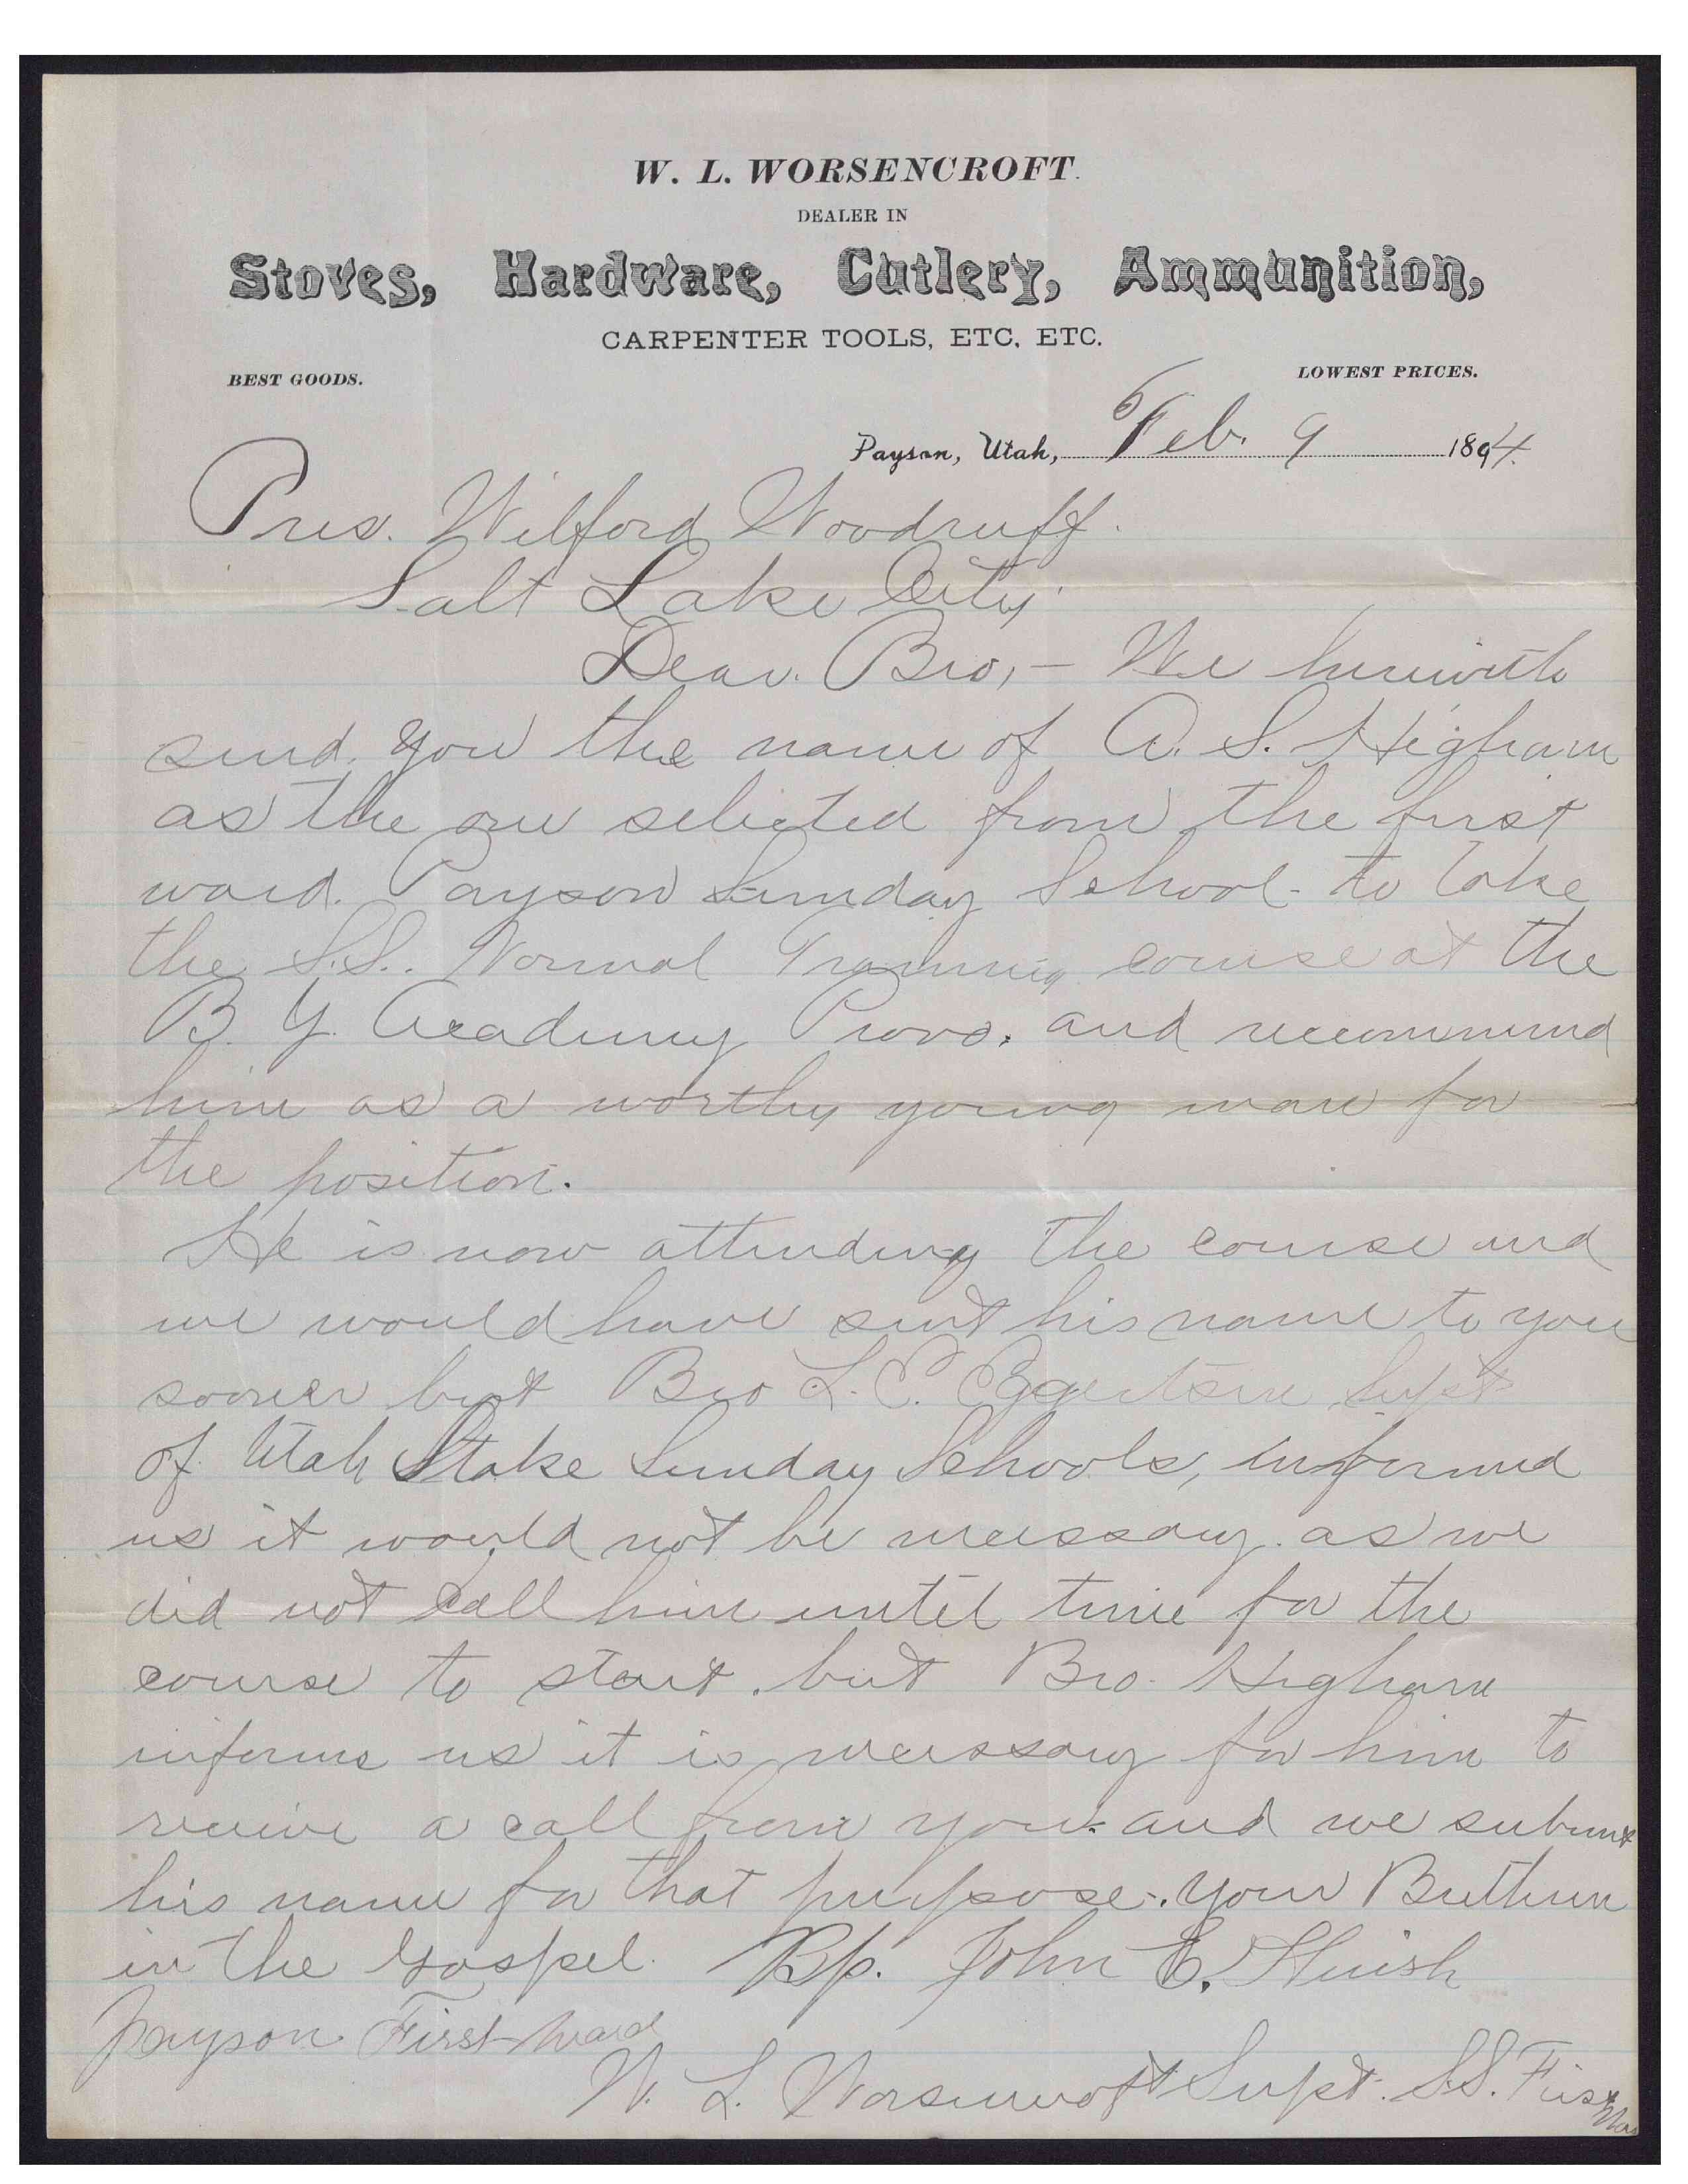 W. L. WORSENCROFT.
DEALER IN
Stoves, Hardware, Cutlery, Ammunition,
CARPENTER TOOLS, ETC, ETC.
BEST GOODS.
LOWEST PRICES.
Payson, Utah, Feb. 9 1894.
Pres. Wilford Woodruff.
Salt Lake City
Dear. Bro, — We herewith
send you the name of A. S. Higham
as the one selected from the first
ward. Payson Sunday School - to take
the S.S. Normal Training course at the
B. Y. Academy Provo. and recommend
him as a worthy young man for
the position.
He is now attending the course and
we would have sent his name to you
sooner but Bro L. C. Eggertsen Supt
of Utah Stake Sunday Schools, informed
us it would not be necessary. as we
did not call him until time for the
course to start. but Bro. Higham
informs us it is necessary for him to
receive a call from you. and we submit
his name for that purpose. Your Brethren
in the Gospel. Bp. John E. Huish
Payson First Ward
W. L. Worsencroft Supt. S.S. First
War